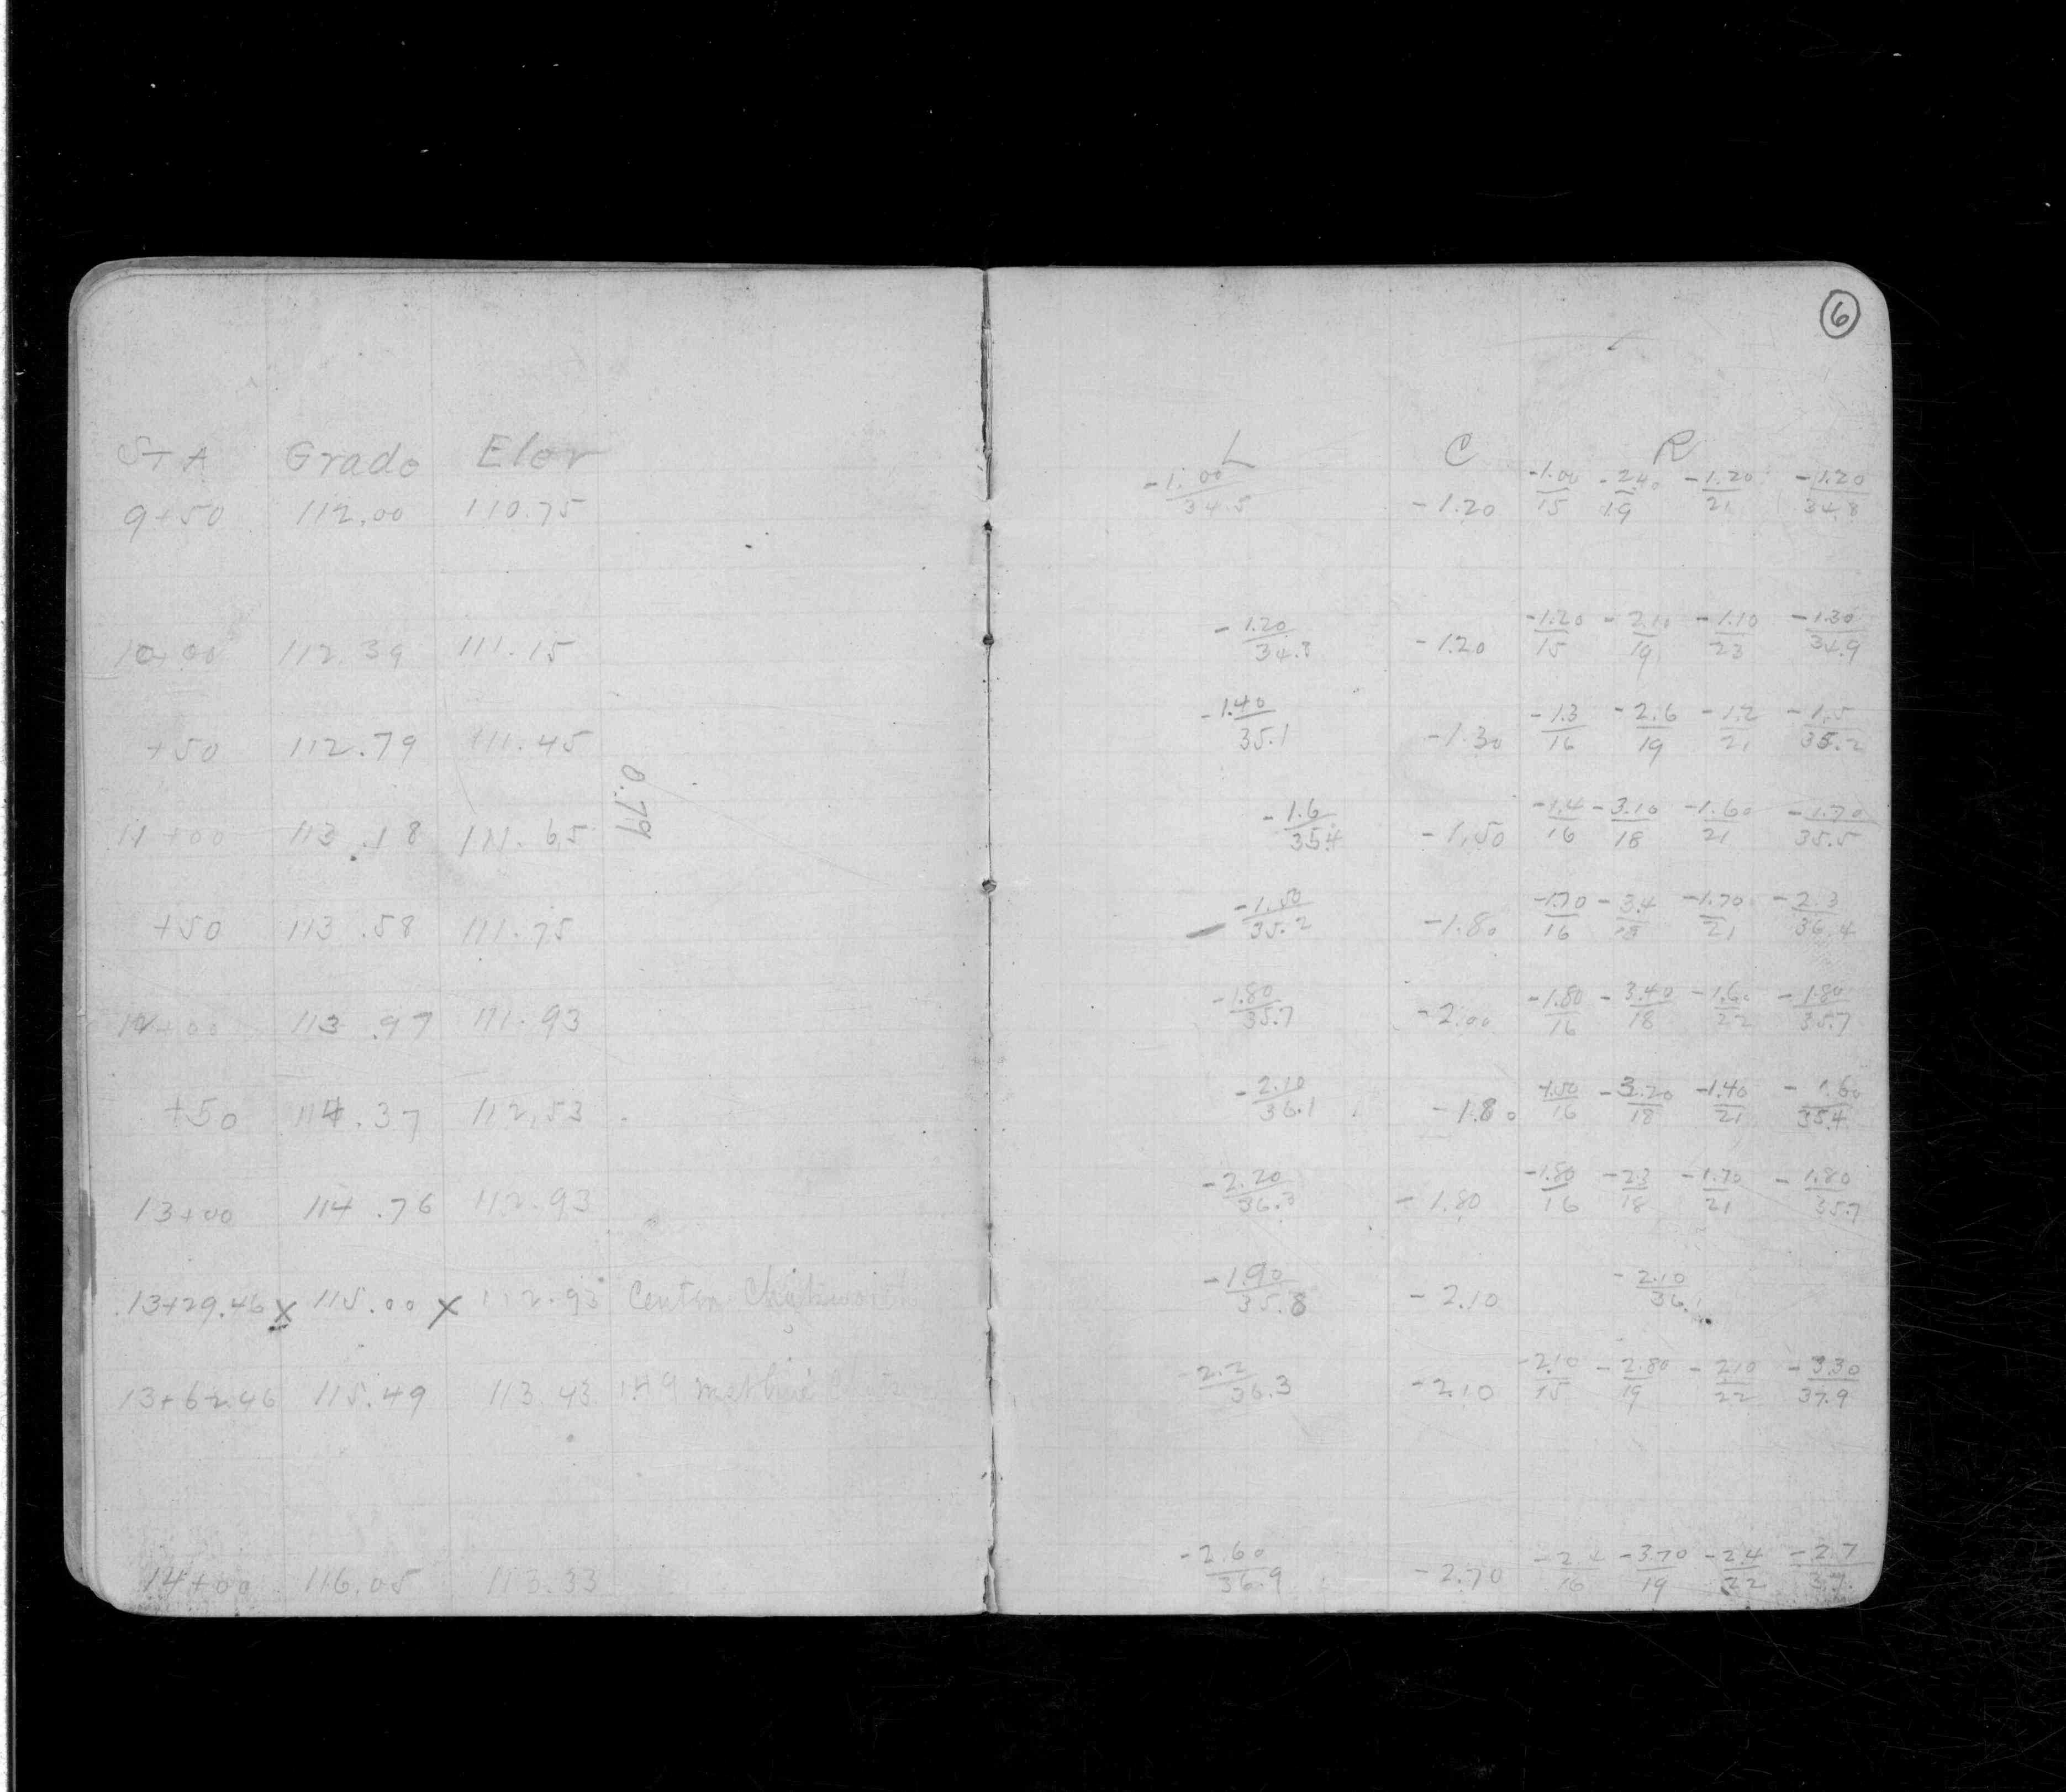 6
STA Grade Elev L C R
9+50 112.00 110.75 -1.00/34.5 -1.20 -1.00/15 -2.40/19 -1.20/21 -1.20/34.8
10+00 112.39 111.15 -1.20/34.8 -1.20 -1.20/15 -2.10/19 -1.10/23 -1.30/34.9
+50 112.79 111.45 -1.40/35.1 -1.30 -1.3/16 -2.6/19 -1.2/21 -1.5/35.2
0.79
11+00 113.18 111.65 -1.6/35.4 -1.50 -1.4/16 -3.10/18 -1.60/21 -1.70/35.5
+50 113.58 111.75 -1.50/35.2 -1.80 -1.70/16 -3.4/18 -1.70/21 -2.3/36.4
12+00 113.97 111.93 -1.80/35.7 -2.00 -1.80/16 -3.40/18 -1.60/22 -1.80/35.7
+50 114.37 112.53 -2.10/36.1 -1.80 /16 -3.20/18 -1.40/21 -1.60/35.4
13+00 114.76 112.93 -2.20/36.3 -1.80 -1.80/16 -2.3/18 -1.70/21 -1.80/35.7
13+29.46 x 115.00 x 112.93 Center -1.90/35.8 -2.10 -2.10/36.1
13+62.46 115.49 113.43 -2.2/36.3 -2.10 -2.10/15 -2.80/19 -2.10/22 -3.30/37.9
14+00 116.05 113.33 -2.60/36.9 -2.70 -2.4/16 -3.70/19 -2.4/22 -2.7/37.